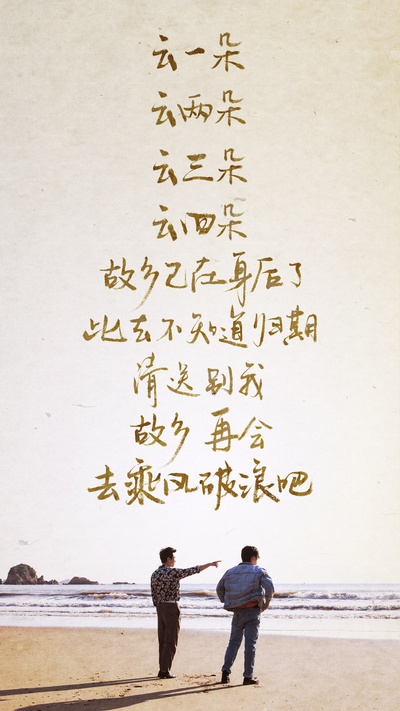 云一朵
云两朵
云三朵
云四朵
故乡已在身后了
此去不知道归期
请送别我
故乡 再会
去乘风破浪吧